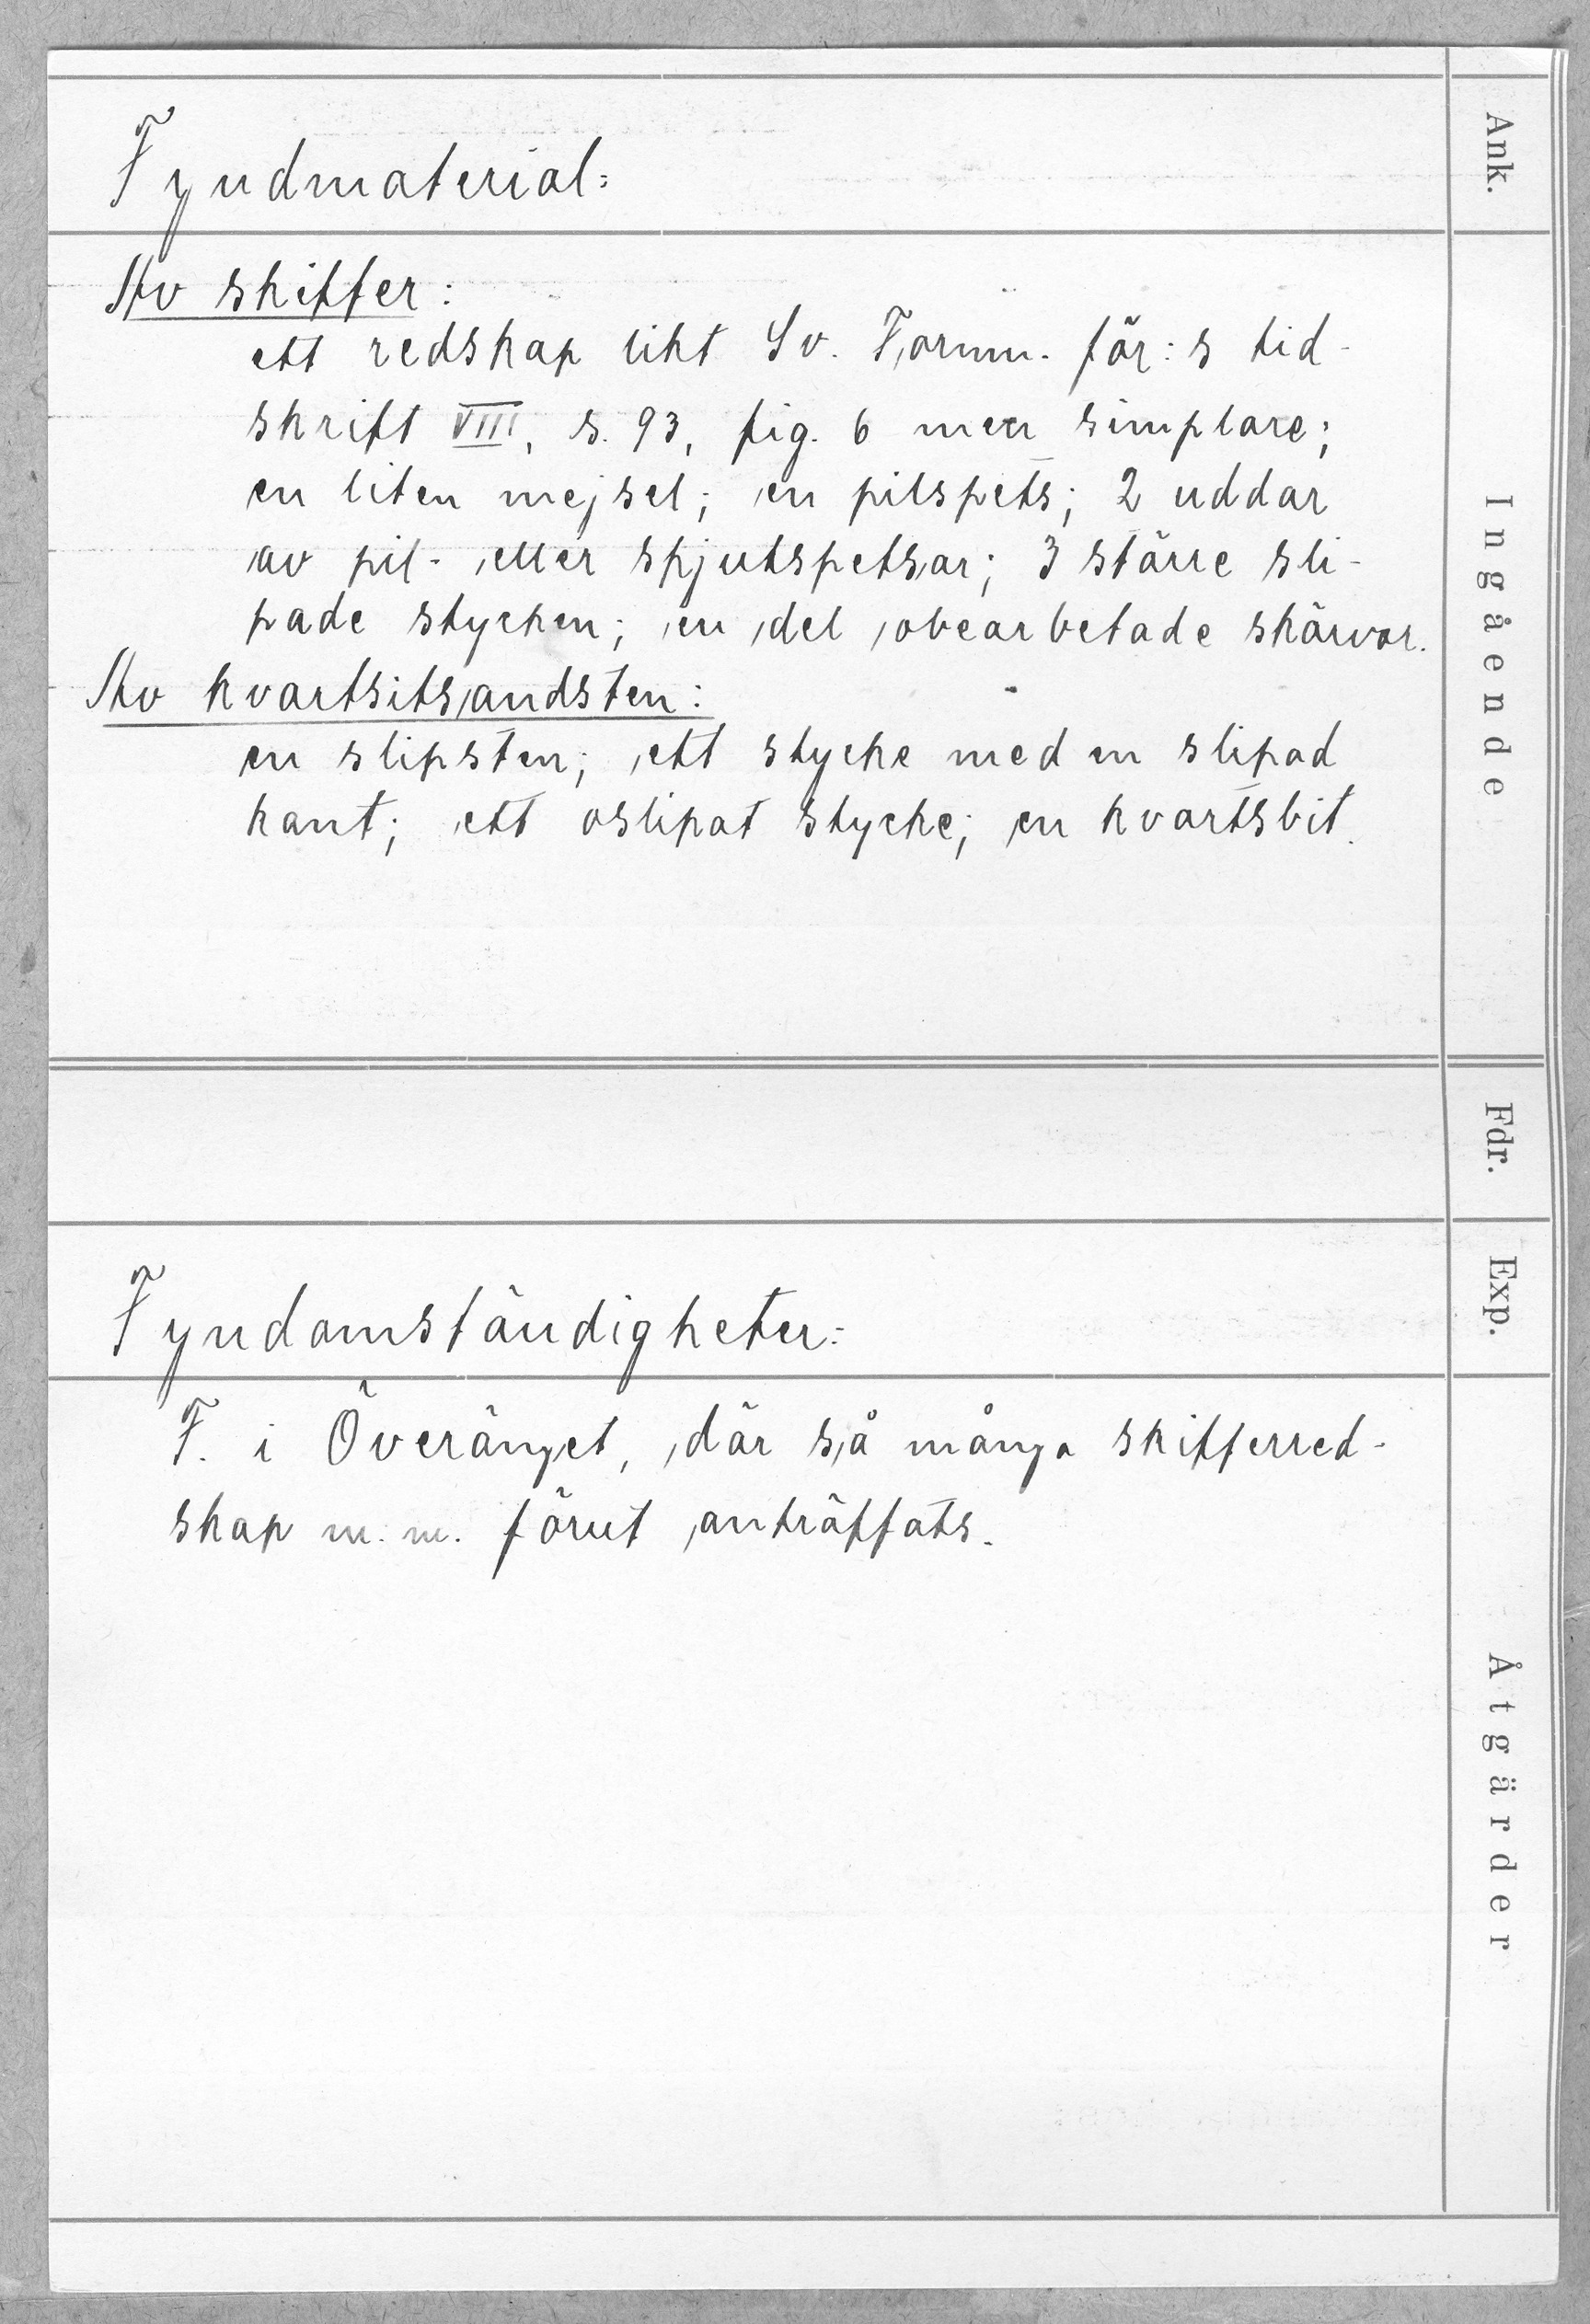 Fyndmaterial:
Av skiffer:
ett redskap likt Sv. Fornm. för:s tid-
skrift VIII, s. 93, fig. 6 men simplare;
en liten mejsel; en pilspets; 2 uddar
av pil- eller spjutspetsar; 3 större sli-
pade stycken; en del obearbetade skärvor.
Av kvartsitsandsten:
en slipsten; ett stycke med en slipad
kant; ett oslipat stycke; en kvartsbit.
Fyndomständigheter:
F. i Överänget, där så många skifferred-
skap m. m. förut anträffats.
Ank.
Ingående
Fdr.
Exp.
Åtgärder